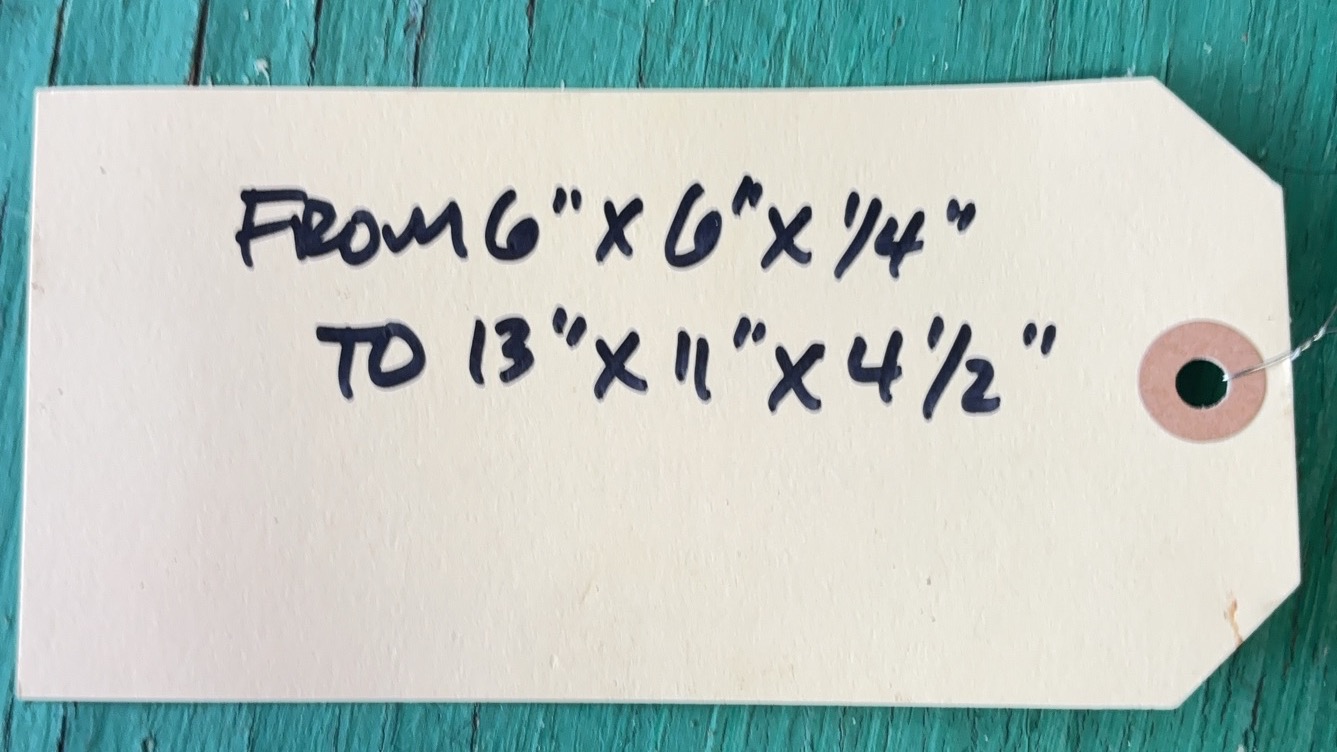 FROM 6" X 6" X 1/4"
TO 13" X 11" X 4 1/2"